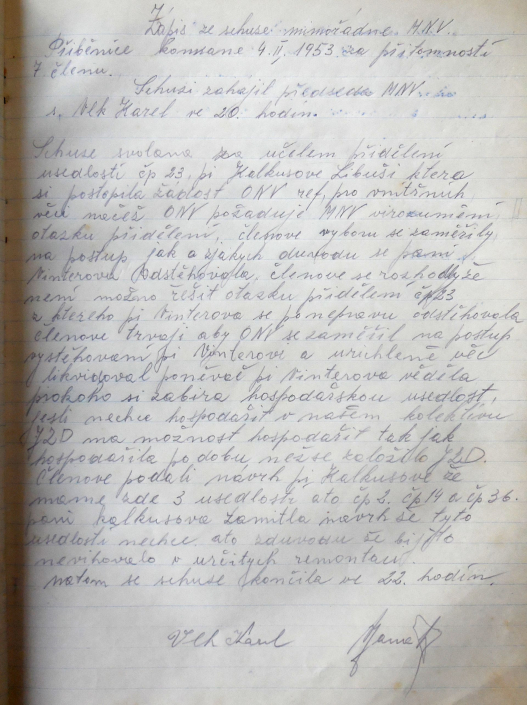 Zápis ze schuse mimořádne M.N.V.
Přiběnice konnane 4.II, 1953 za přitomností
7 členu.
Schusi zahájil předseda MNV
s. Vlk Karel ve 20. hodin.
Schuse svolana za učelem přidělení
usedlosti čp 23, pi Kalkusove Libuši ktera
si postopila žádost ONV ref, pro vnitřních
věci načež ONV požaduje MNV virozumění,
otazku přidělení, členove vyboru se zaměřily
na postup jak a zjakych duvodu se pani
Vinterova odstěhovala, členove se rozhodly že
není možno řešit otazku přidělení čp 23
z ktereho pi Vinterova se ponepravu odstěhovala
členove trvaji aby ONV se zaměšil na postup
vystěhovani pi Vinterove a urichleně věc
likvidoval poněvač pi Vinterova věděla
prokoho si zabira hospodařskou usedlost,
jesli nechce hospodařit v našem kolektivu
JZD ma možnost hospodařit tak jak
hospodařila po dobu nezse založilo JZD.
Členove podali návrh pi Kalkusove že
mame zde 3 usedlosti ato čp 2. čp 14 a čp 36.
pani kalkusova zamitla navrh še tyto
usedlosti nechce ato zduvodu še bi jito
nevihovalo v určitych remontau.
natom se schuse skončila ve 22. hodin.
Vlk Karel